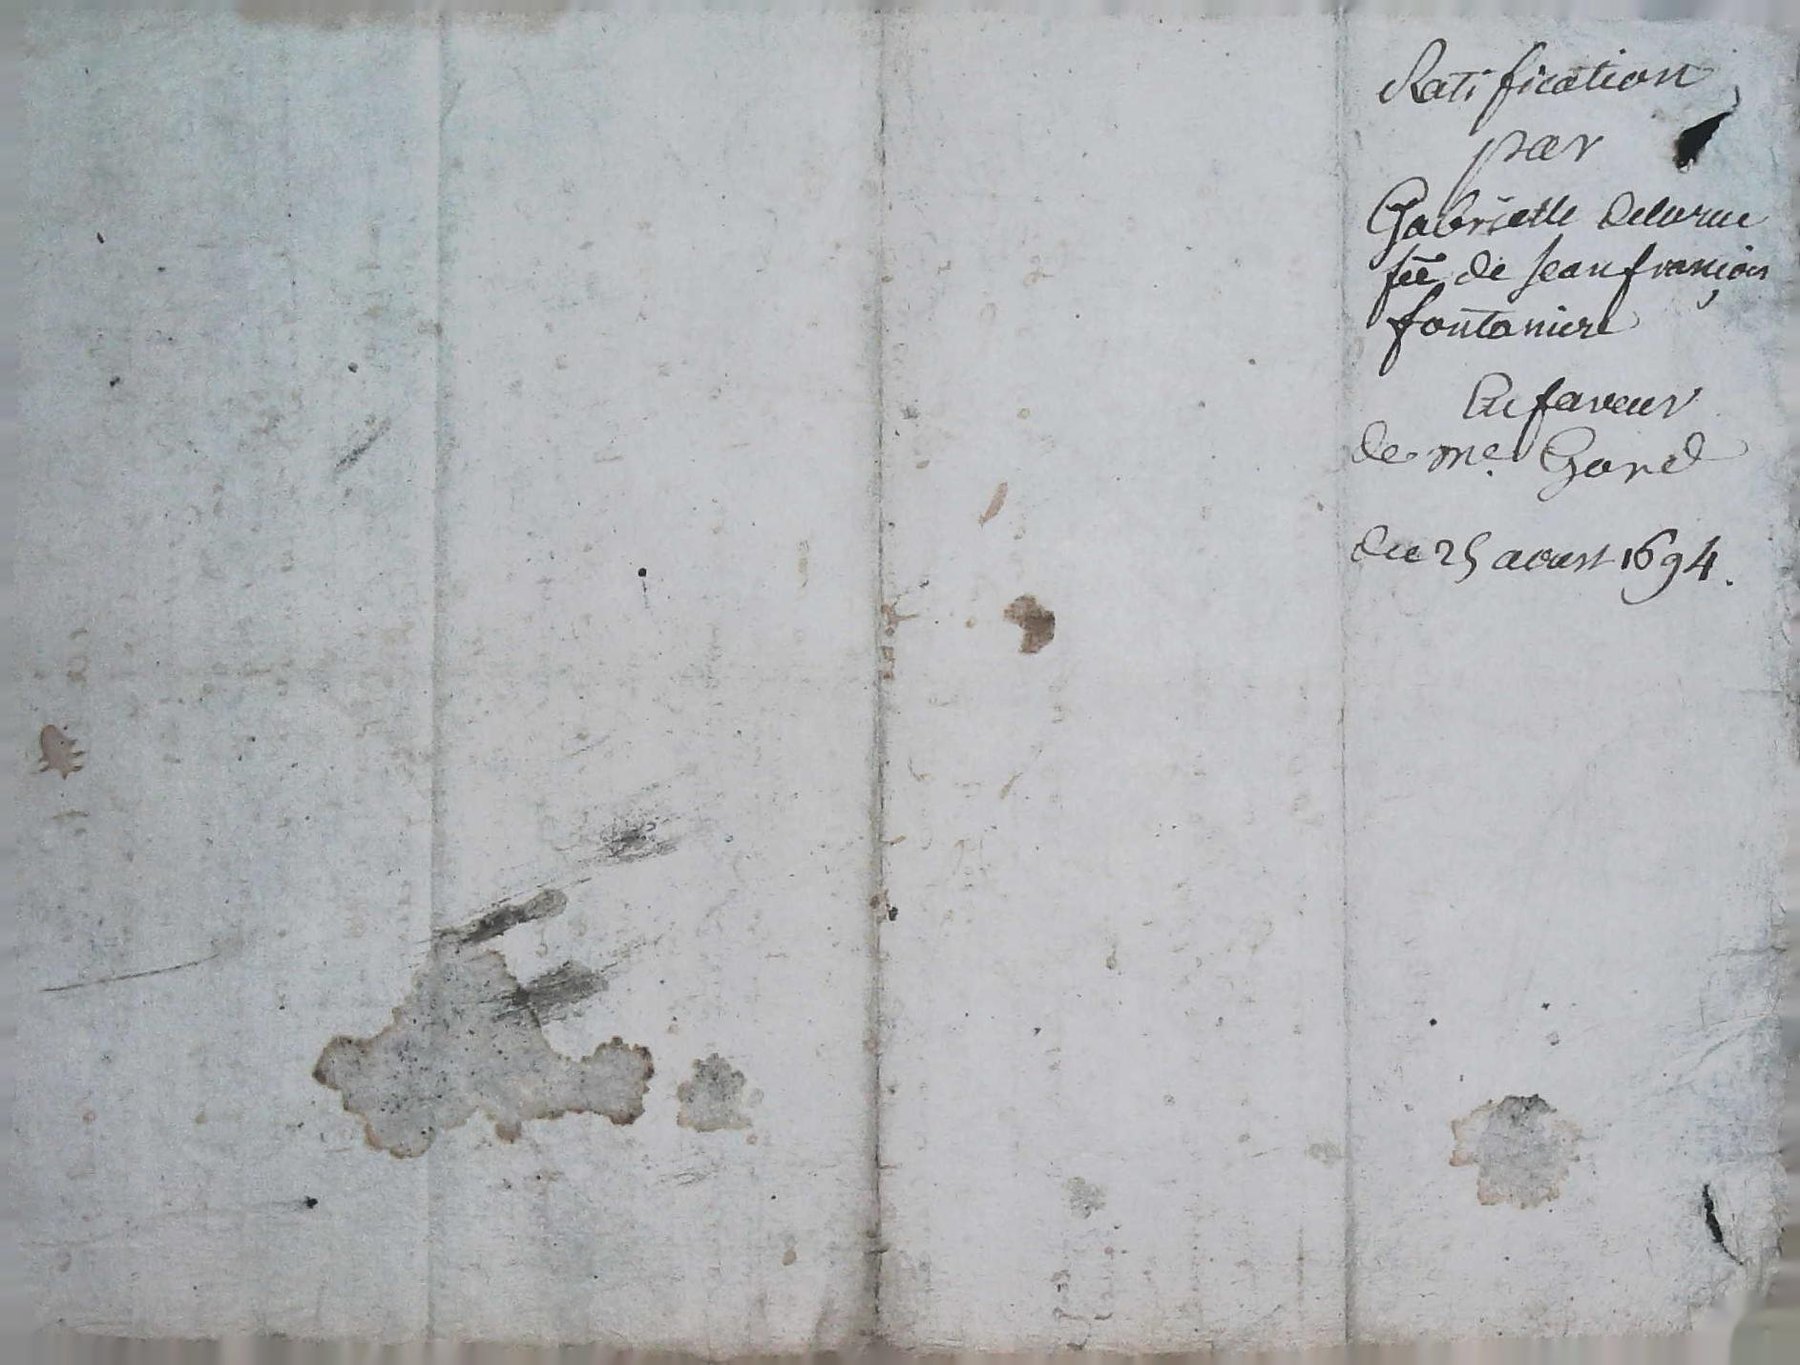 Ratification
par
Gabrielle Delarue
fẽe de Jean françois
fontaniere
En faveur
de me. Gard
du 25 aoust 1694.